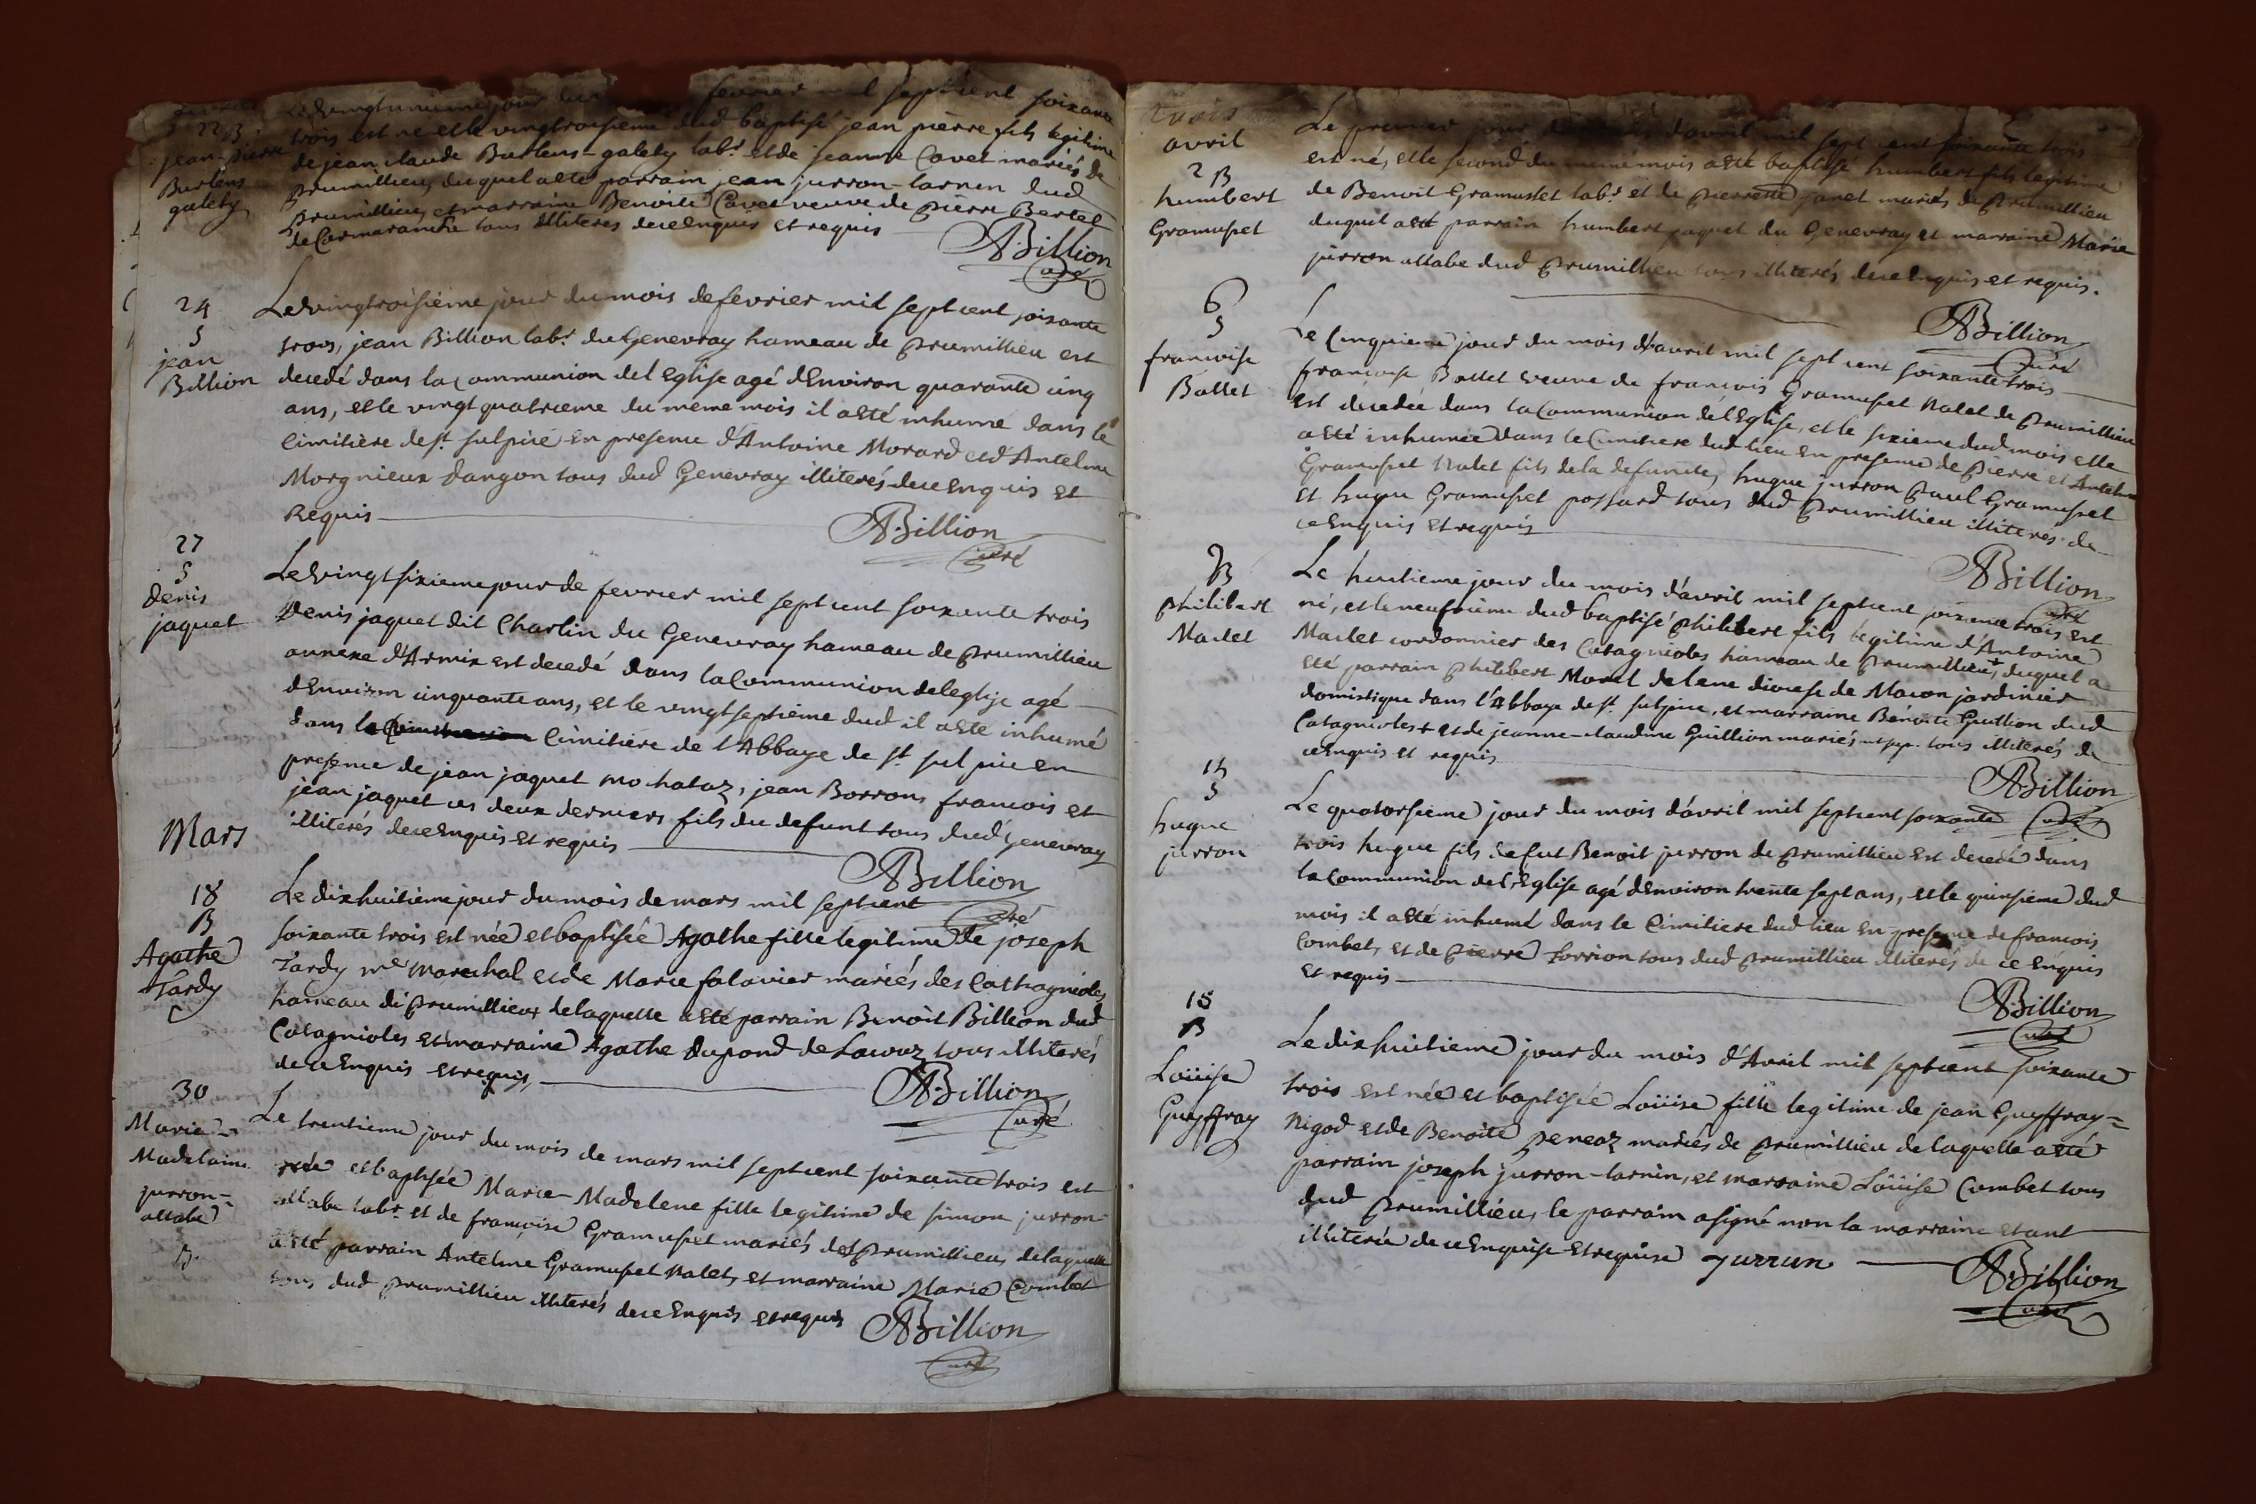 fevrier mil septcent soixante
trois est né et le vingtroisieme dud baptisé jean pierre fils legitime
de jean claude Burlens-galety labr. et de jeanne Cavet mariés de
Prumillieu, duquel a eté parrain jean jurron-larnin dud
Prumillieu, et marraine Benoite Cavet veuve de Pierre Bertet
de Cormaranche tous illiterés de ce Enquis et requis
jean-pierre
Burlens
galety
ABillion
Curé
24
S
jean
Billion
Le vingtroisième jour du mois de fevrier mil sept cent soixante
trois, jean Billion labr. du Genevray hameau de Prumillieu est
decedé dans la Communion de l'Eglise agé d'Environ quarante cinq
ans, et le vingt quatrieme du meme mois il a eté inhumé dans le
Cimitière de st. sulpice en presence d'Antoine Morard et d'Antelme
Morgnieux dangon tous dud Genevray illiterés de ce Enquis et
Requis
ABillion
Curé
27
S
denis
jaquet
Le vingt sixieme jour de fevrier mil sept cent soixante trois
Denis jaquet dit Charlin du Genevray hameau de Prumillieu
annexe d'Armix est decedé dans la Communion de l'eglise agé
d'Environ cinquante ans, et le vingt septième dud il a eté inhumé
dans le Cimitière de l'Abbaye de st. sulpice en
presence de jean jaquet mochataz, jean Borron, francois et
jean jaquet ces deux derniers fils du defunt tous dud Genevray
illiterés de ce Enquis et requis
ABillion
Curé
Mars
18
B
Agathe
Tardy
Le dixhuitieme jour du mois de mars mil septcent
soixante trois est née et baptisée Agathe fille legitime de joseph
Tardy me marechal et de Marie falavier mariés des Cathagnioles
hameau de Prumillieu, de laquelle a eté parrain Benoit Billion dud
Catagnioles et marraine Agathe dupond de Lacouz tous illiterés
de ce Enquis et requis,
ABillion
Curé
30
Marie-
Madelaine
jurron-
allabe
B.
Le trentieme jour du mois de mars mil septcent soixante trois est
née et baptisée Marie-Madelene fille legitime de simon jurron-
allabe labr. et de françoise Gramuset mariés de Prumillieu, de laquelle
a eté parrain Antelme Gramuset Nalet, et marraine Marie Combet
tous dud Prumillieu illiterés de ce Enquis et requis
ABillion
Curé
avril
2 B
humbert
Gramuset
Le premier jour d'avril mil sept cent soixante trois
est né, et le second du meme mois a eté baptisé humbert fils legitime
de Benoit Gramuset labr. et de Pierrette janet mariés de Prumillieu
duquel a eté parrain humbert jaquet du Genevray et marraine Marie
jurron allabe dud Prumillieu tous illiterés de ce Enquis et requis.
ABillion
Curé
6
S
francoise
Ballet
Le Cinquieme jour du mois d'avril mil sept cent soixante trois
francoise Ballet veuve de francois Gramuset Nalet de Prumillieu
est decedée dans la Communion de l'Eglise, et le sixieme dud mois elle
a eté inhumée dans le Cimitiere dud lieu en presence de Pierre et Antelme
Gramuset Nalet fils de la defunte, hugue jurron Paul Gramuset
et hugue Gramuset possard tous dud Prumillieu illiterés de
ce Enquis et requis
ABillion
Curé
B
Philibert
Maclet
Le huitieme jour du mois d'avril mil septcent soixante trois est
né, et le neufvieme dud baptisé Philibert fils legitime d'Antoine
Maclet cordonnier des Catagnioles hameau de Prumillieu, duquel a
eté parrain Philibert Morel de lene diocese de Macon jardinier
domistique dans l'Abbaye de st. sulpice, et marraine Benoite Guillion dud
Catagnioles + et de jeanne-claudine Guillion mariés tous illiterés de
ce Enquis et requis
ABillion
Curé
15
S
hugue
jurron
Le quatorsieme jour du mois d'avril mil septcent soixante
trois hugue fils de fut Benoit jurron de Prumillieu est decedé dans
la Communion de l'Eglise agé d'Environ trente sept ans, et le quinsieme dud
mois il a eté inhumé dans le Cimitiere dud lieu en presence de francois
Combet, et de Pierre forrion tous dud Prumillieu illiterés de ce Enquis
et requis
ABillion
Curé
18
B
Loüise
Guyffray
Le dixhuitieme jour du mois d'Avril mil septcent soixante
trois est née et baptisée Loüise fille legitime de jean Guyffray=
Nigod et de Benoite Peneaz mariés de Prumillieu de laquelle a eté
parrain joseph jurron-larnin, et marraine Loüise Combet tous
dud Prumillieu, le parrain a signé non la marraine etant
illiterée de ce Enquise et requise jurrun
ABillion
Curé